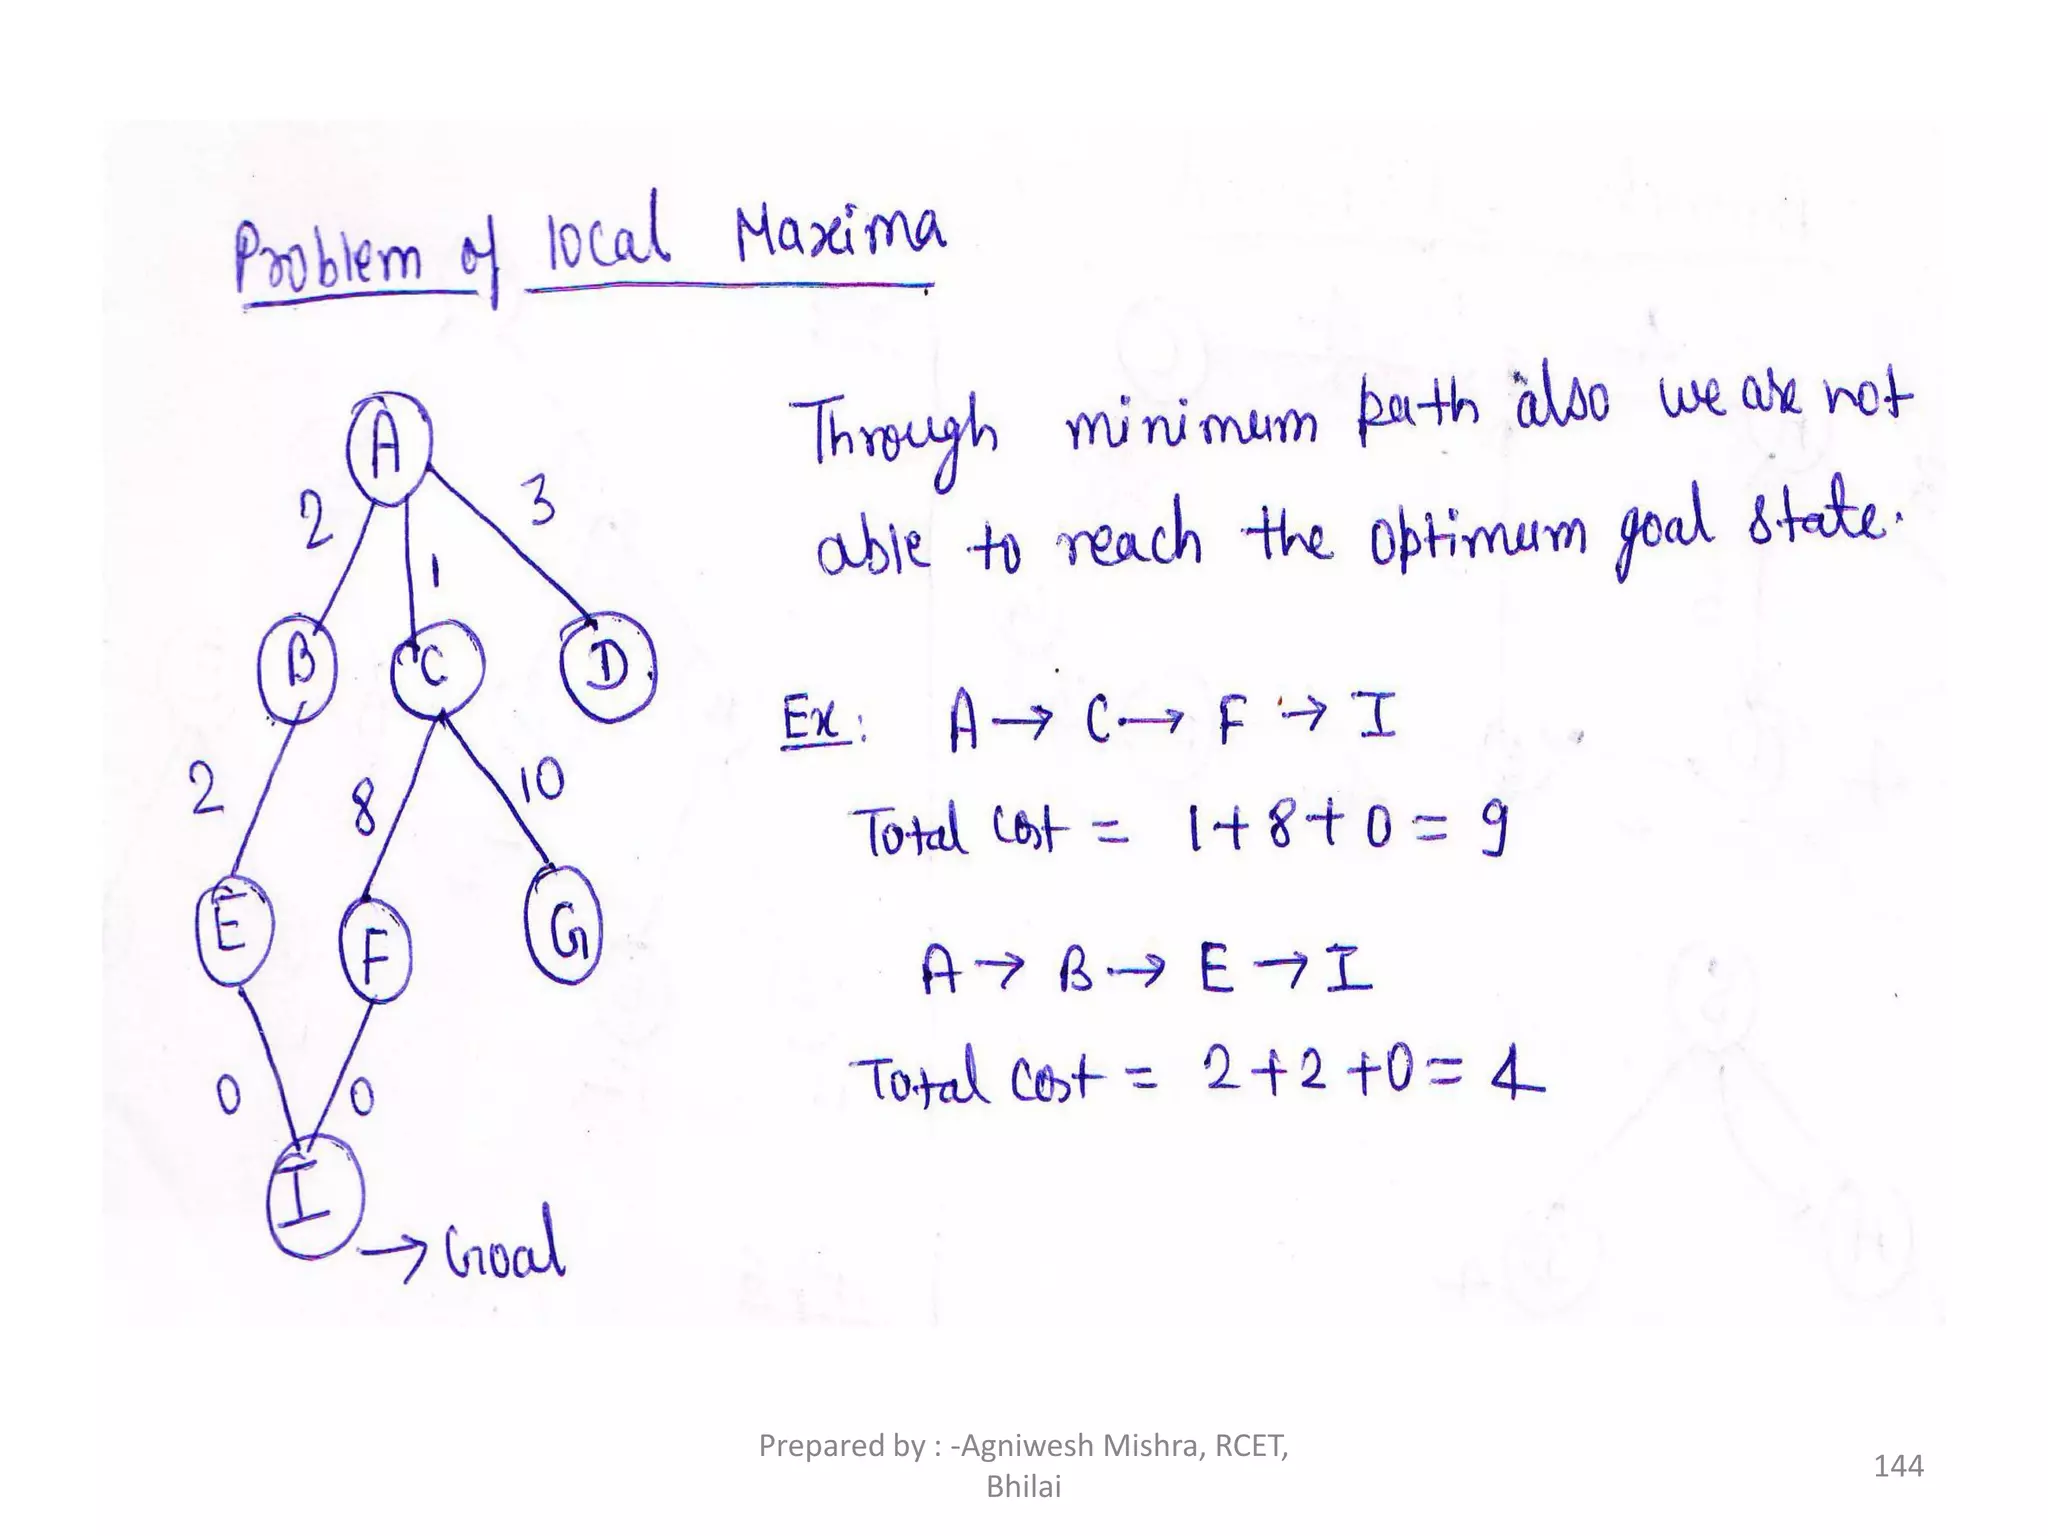 Problem of local Maxima
A
Through minimum path also we are not
2
3
able to reach the optimum goal state.
1
B
C
D
Ex: A → C → F → I
2
8
10
Total Cost = 1 + 8 + 0 = 9
E
F
G
A → B → E → I
0
0
Total Cost = 2 + 2 + 0 = 4
I
→ Goal
Prepared by : -Agniwesh Mishra, RCET,
Bhilai
144